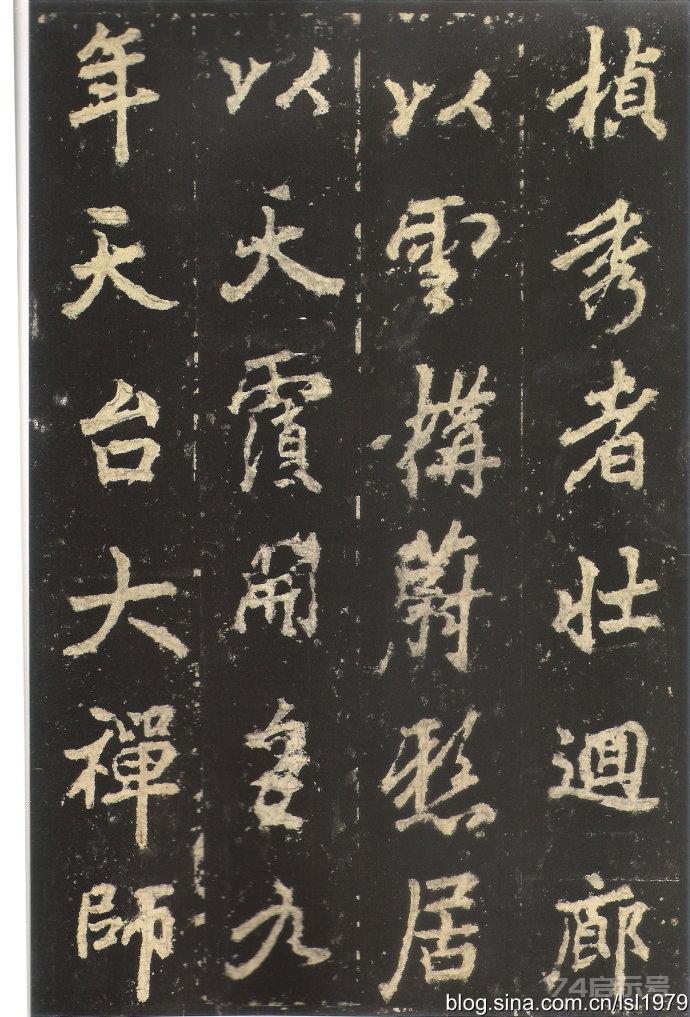 楨秀者壯迴廊
以雲構蔚懸居
以天霞開皇九
年天台大禪師
74启示号
blog.sina.com.cn/lsl1979